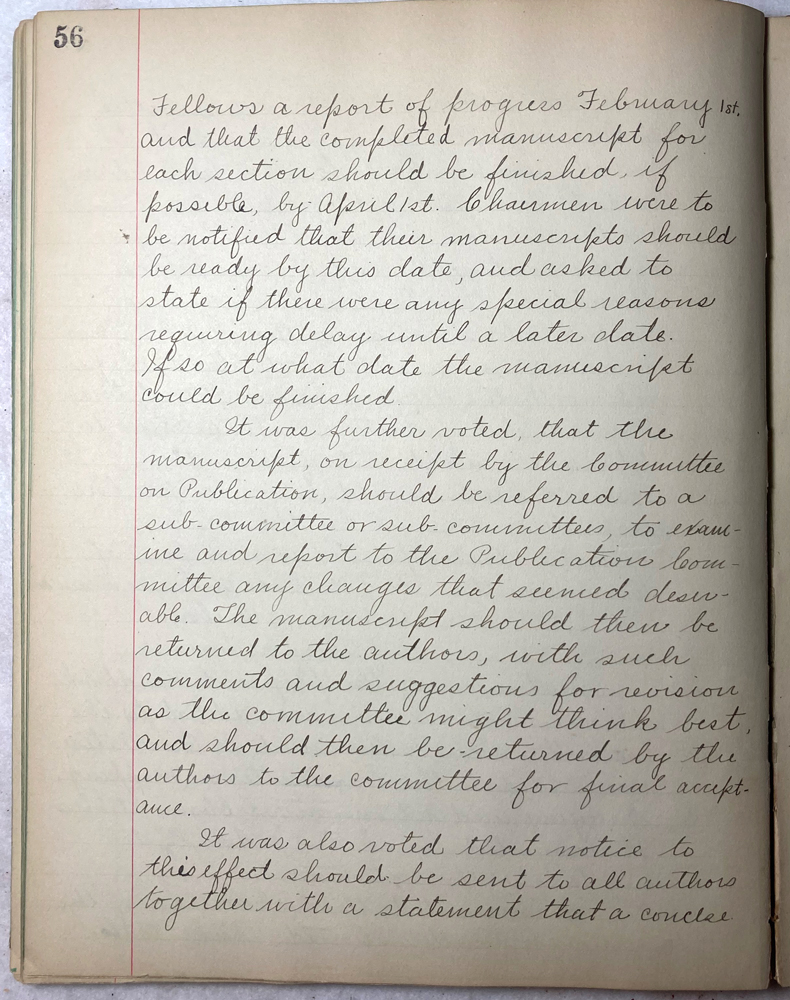 56
Fellows a report of progress February 1st,
and that the completed manuscript for
each section should be finished, if
possible, by April 1st. Chairmen were to
be notified that their manuscripts should
be ready by this date, and asked to
state if there were any special reasons
requiring delay until a later date.
If so at what date the manuscript
could be finished.
It was further voted, that the
manuscript, on receipt by the Committee
on Publication, should be referred to a
sub-committee or sub-committees, to exam-
ine and report to the Publication Com-
mittee any changes that seemed desir-
able. The manuscript should then be
returned to the authors, with such
comments and suggestions for revision
as the committee might think best,
and should then be returned by the
authors to the committee for final accept-
ance.
It was also voted that notice to
this effect should be sent to all authors
together with a statement that a concise